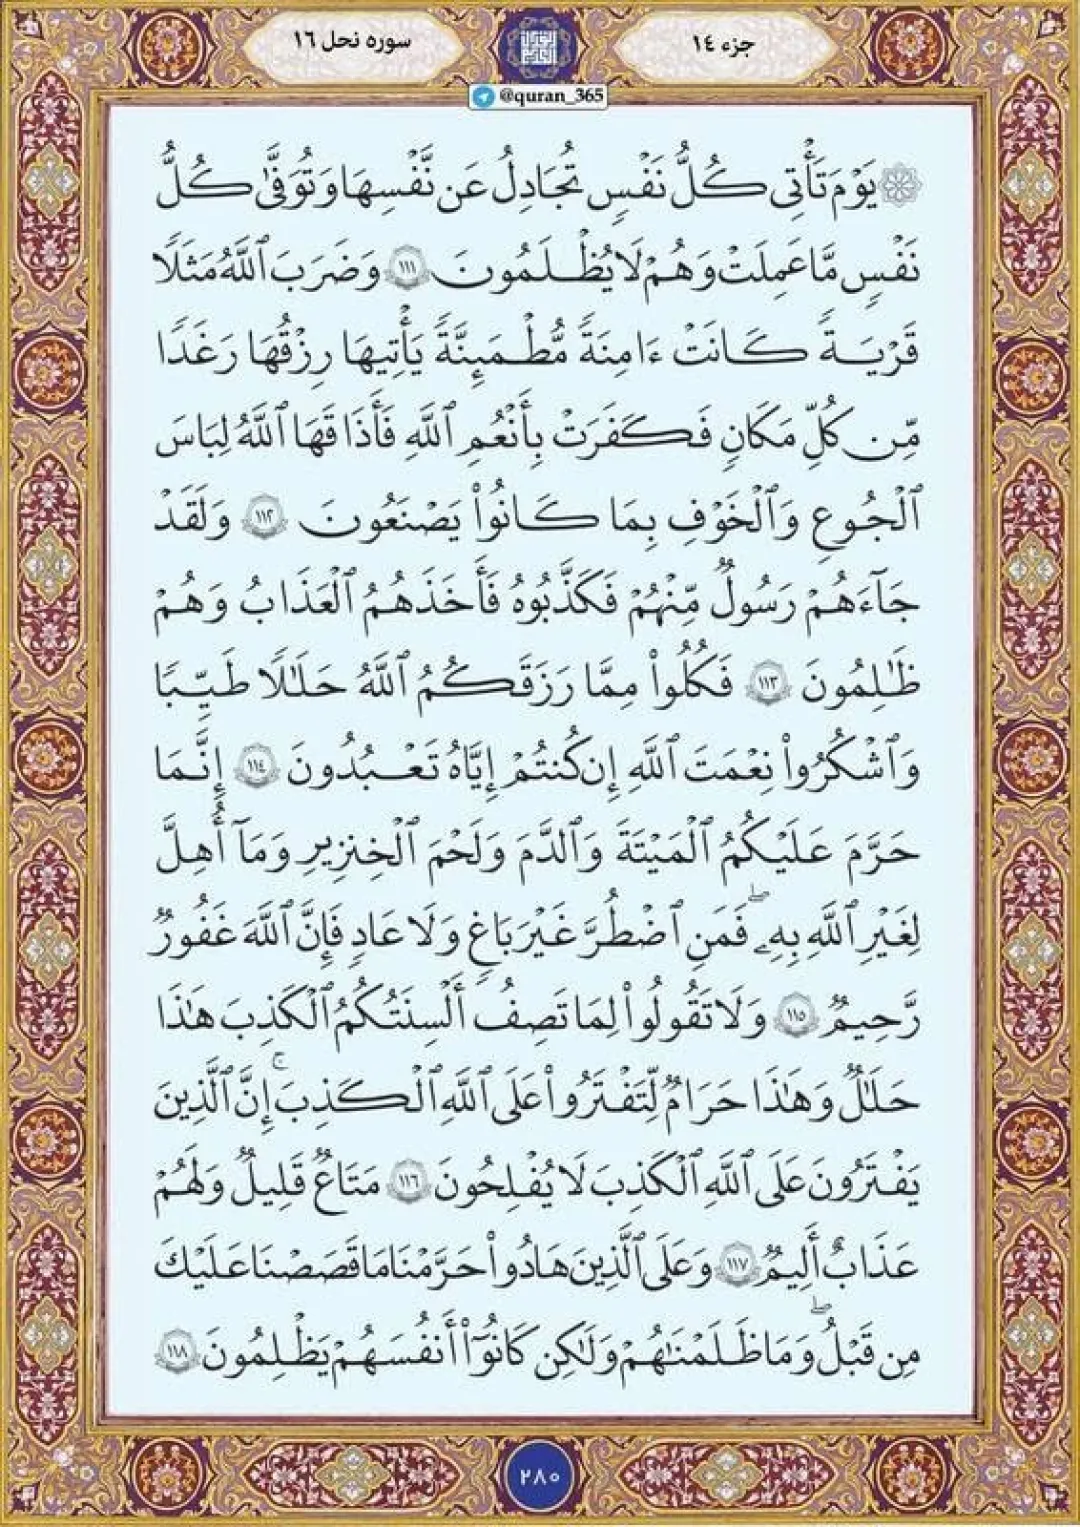 جزء ١٤
سوره نحل ١٦
@quran_365
۞ يَوْمَ تَأْتِى كُلُّ نَفْسٍ تُجَادِلُ عَن نَّفْسِهَا وَتُوَفَّىٰ كُلُّ
نَفْسٍ مَّا عَمِلَتْ وَهُمْ لَا يُظْلَمُونَ ١١١ وَضَرَبَ ٱللَّهُ مَثَلًا
قَرْيَةً كَانَتْ ءَامِنَةً مُّطْمَئِنَّةً يَأْتِيهَا رِزْقُهَا رَغَدًا
مِّن كُلِّ مَكَانٍ فَكَفَرَتْ بِأَنْعُمِ ٱللَّهِ فَأَذَاقَهَا ٱللَّهُ لِبَاسَ
ٱلْجُوعِ وَٱلْخَوْفِ بِمَا كَانُوا۟ يَصْنَعُونَ ١١٢ وَلَقَدْ
جَآءَهُمْ رَسُولٌ مِّنْهُمْ فَكَذَّبُوهُ فَأَخَذَهُمُ ٱلْعَذَابُ وَهُمْ
ظَٰلِمُونَ ١١٣ فَكُلُوا۟ مِمَّا رَزَقَكُمُ ٱللَّهُ حَلَٰلًا طَيِّبًا
وَٱشْكُرُوا۟ نِعْمَتَ ٱللَّهِ إِن كُنتُمْ إِيَّاهُ تَعْبُدُونَ ١١٤ إِنَّمَا
حَرَّمَ عَلَيْكُمُ ٱلْمَيْتَةَ وَٱلدَّمَ وَلَحْمَ ٱلْخِنزِيرِ وَمَآ أُهِلَّ
لِغَيْرِ ٱللَّهِ بِهِۦ ۖ فَمَنِ ٱضْطُرَّ غَيْرَ بَاغٍ وَلَا عَادٍ فَإِنَّ ٱللَّهَ غَفُورٌ
رَّحِيمٌ ١١٥ وَلَا تَقُولُوا۟ لِمَا تَصِفُ أَلْسِنَتُكُمُ ٱلْكَذِبَ هَٰذَا
حَلَٰلٌ وَهَٰذَا حَرَامٌ لِّتَفْتَرُوا۟ عَلَى ٱللَّهِ ٱلْكَذِبَ ۚ إِنَّ ٱلَّذِينَ
يَفْتَرُونَ عَلَى ٱللَّهِ ٱلْكَذِبَ لَا يُفْلِحُونَ ١١٦ مَتَاعٌ قَلِيلٌ وَلَهُمْ
عَذَابٌ أَلِيمٌ ١١٧ وَعَلَى ٱلَّذِينَ هَادُوا۟ حَرَّمْنَا مَا قَصَصْنَا عَلَيْكَ
مِن قَبْلُ ۖ وَمَا ظَلَمْنَٰهُمْ وَلَٰكِن كَانُوٓا۟ أَنفُسَهُمْ يَظْلِمُونَ ١١٨
٢٨٠